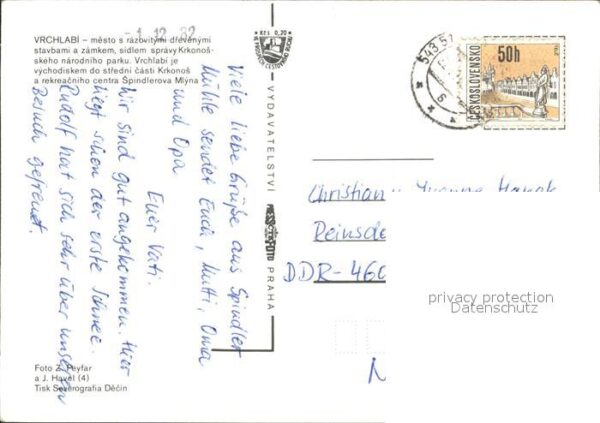 VRCHLABÍ – město s rázovitými dřevěnými
stavbami a zámkem, sídlem správy Krkonoš-
ského národního parku. Vrchlabí je
východiskem do střední části Krkonoš
a rekreačního centra Špindlerova Mlýna
-1. 12. 82
Viele liebe Grüße aus Spindler
Mühle sendet Euch, Mutti, Oma
und Opa
Euer Vati.
Wir sind gut angekommen. Hier
liegt schon der erste Schnee.
Rudolf hat sich sehr über unseren
Besuch gefreut.
Foto Z. Peyfar
a J. Havel (4)
Tisk Severografia Děčín
Kčs 0,20
VYDAVATELSTVÍ
PRAHA
543 51
50h
ČESKOSLOVENSKO
Christian Yvonne
Peinsdo
DDR-460
privacy protection
Datenschutz